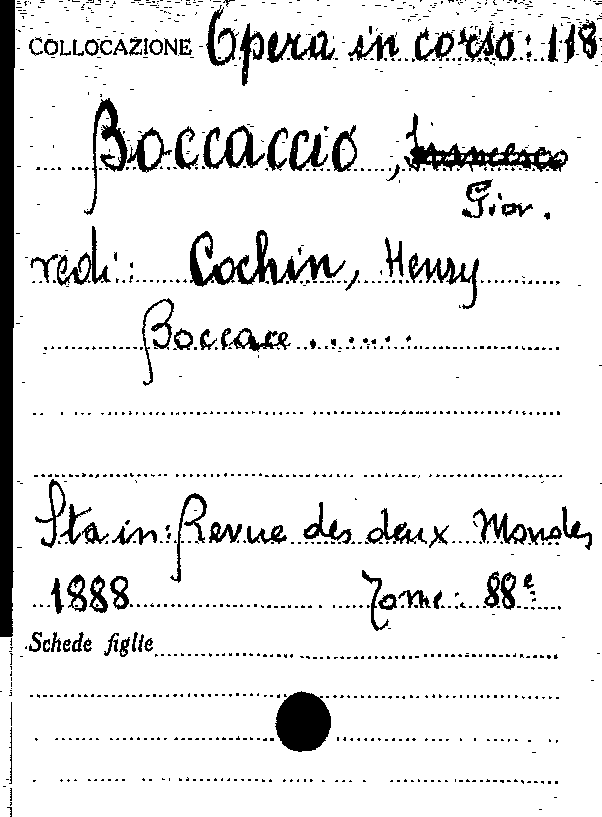 COLLOCAZIONE Opera in corso: 118
Boccaccio, Francesco
Giov.
vedi: Cochin, Henry
Boccace ......
Sta in: Revue des deux Mondes,
1888 Tome: 88e
Schede figlie